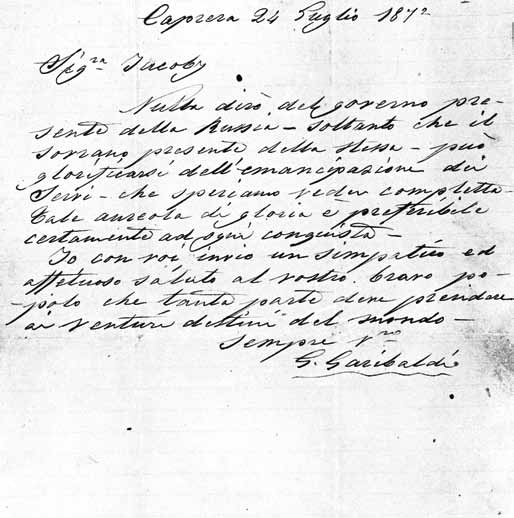 Caprera 24 Luglio 1872
Sigra Jacoby
Nulla dirò del governo pre-
sente della Russia - soltanto che il
sovrano presente della stessa - può
glorificarsi dell'emancipazione dei
Servi - che speriamo veder completta -
Tale aureola di gloria è preferibile
certamente ad ogni conquista -
Io con voi invio un simpatico ed
affetuoso saluto al vostro bravo po-
-polo che tanta parte deve prendere
ai venturi destini del mondo -
Sempre Vro
G. Garibaldi